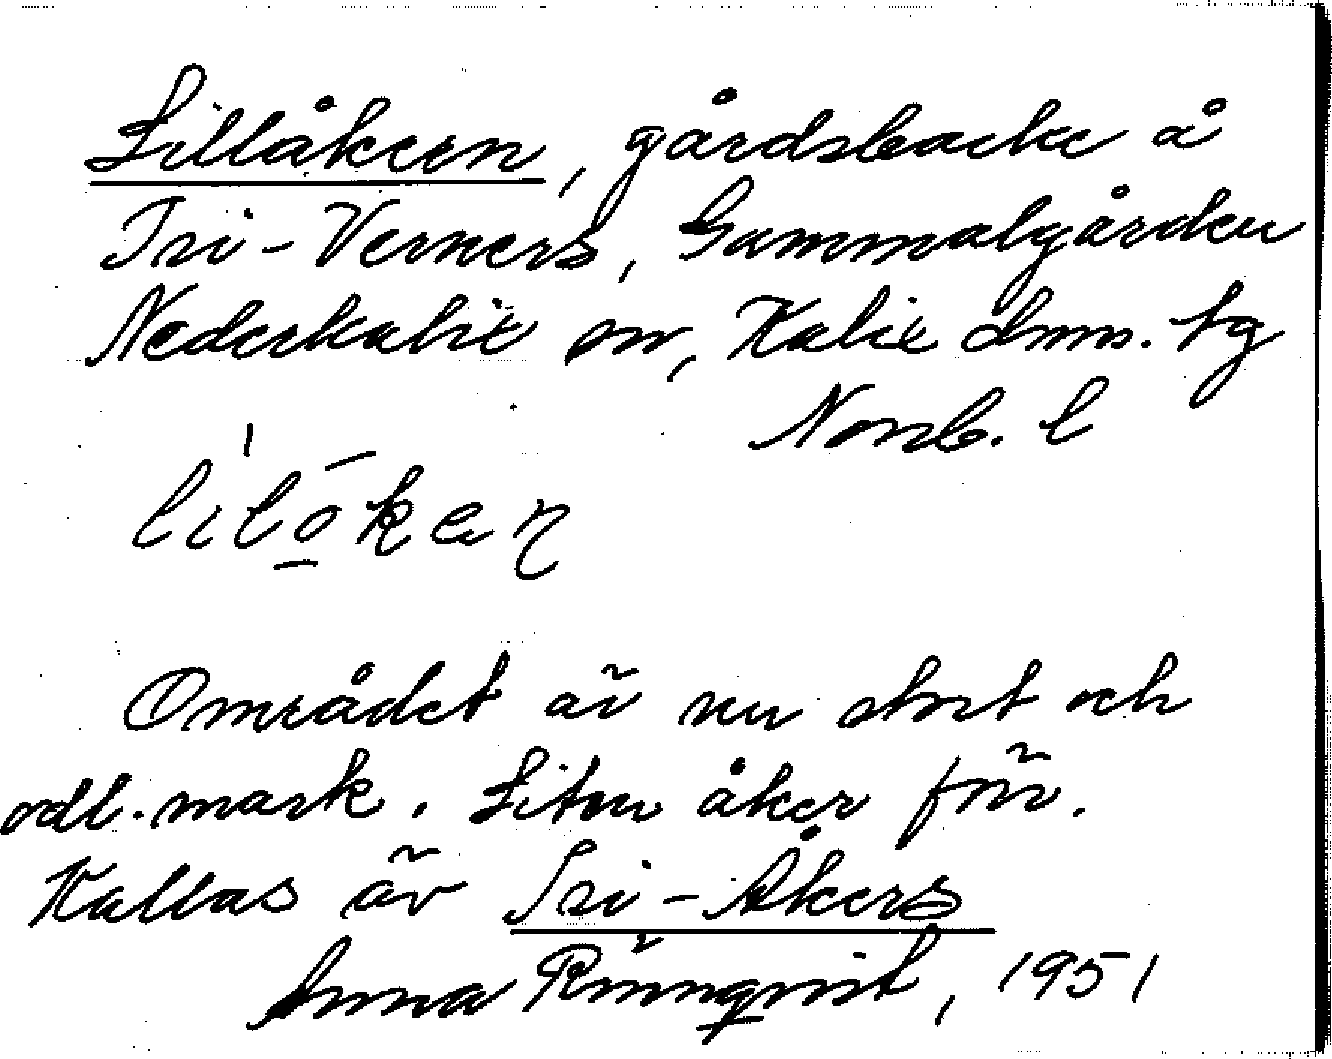 Lillåkern, gårdsbacke å
Isi-Verners, Gammalgården
Nederkalix sn, Kalix dnms. tg
Norrb. l
lilåkeṇ
Området är nu stort och
odl. mark. Liten åker förr.
Kallas äv Isi-Åkers
Anna Rönnqvist, 1951